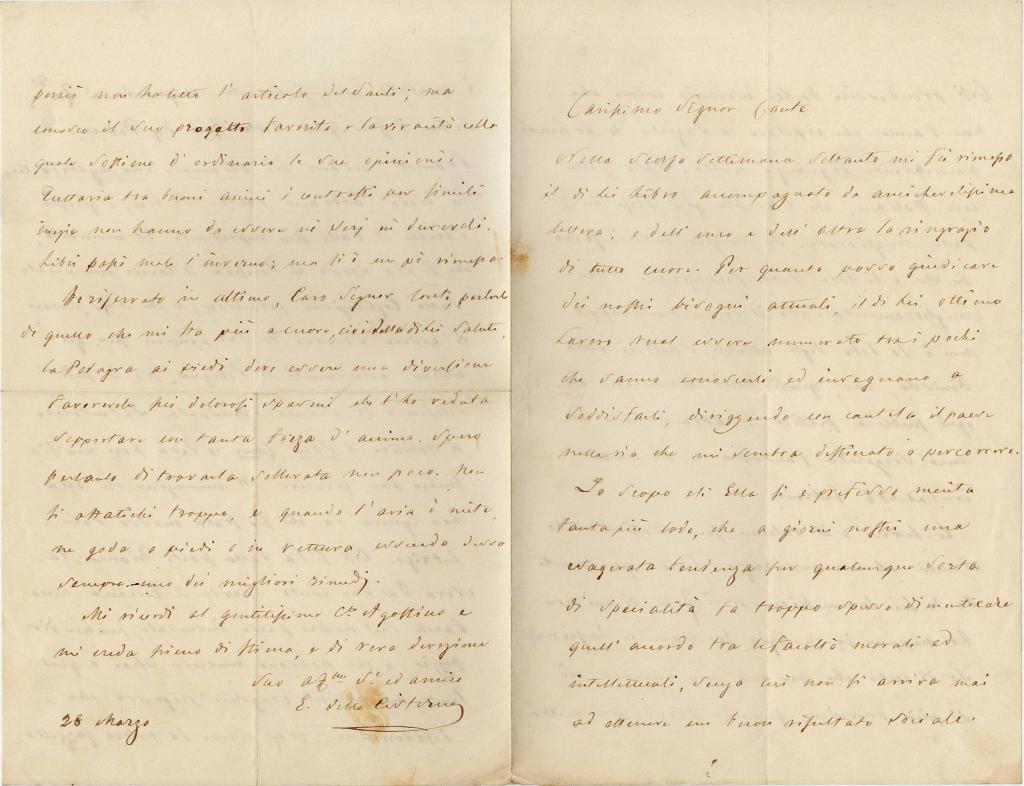 Carissimo Signor Conte
Nella scorsa settimana soltanto mi fu rimesso
il di Lei Libro accompagnato da amichevolissima
lettera; e dell' uno e dell' altra la ringrazio
di tutto cuore. Per quanto posso giudicare
dei nostri bisogni attuali, il di Lei ottimo
Lavoro vuol essere numerato tra i pochi
che sanno conoscerli ed insegnano a
soddisfarli, diriggendo con cautela il paese
nella via che mi sembra destinato a percorrere.
Lo scopo ch' Ella si è prefisso merita
tanta più lode, che a giorni nostri una
esagerata tendenza per qualunque sorta
di specialità fa troppo spesso dimenticare
quell' accordo tra le facoltà morali ed
intellettuali, senza cui non si arriva mai
ad ottenere un buon risultato sociale.
non ho letto l' articolo del Sauli; ma
conosco il suo progetto favorito e la vivacità colla
quale sostiene d' ordinario le sue opinioni.
Tuttavia tra buoni amici i contrasti per simili
inezie non hanno da essere nè serj nè durevoli.
passò male l' inverno; ma si è un pò rimesso.
Ho riservato in ultimo, Caro Signor Conte, parlarle
di quello che mi sta più a cuore, cioè della di Lei salute.
La Podagra ai piedi deve essere una diversione
favorevole pei dolorosi spasmi che l' ho veduta
sopportare con tanta forza d' animo. Spero
pertanto di trovarla sollevata non poco. Non
si affatichi troppo, e quando l' aria è mite,
ne goda a piedi o in vettura, essendo desso
sempre uno dei migliori rimedj.
Mi ricordi al gentilissimo Ce. Agostino e
mi creda pieno di stima, e di vera devozione
Suo affmo S.e ed amico
E. della Cisterna
28 Marzo